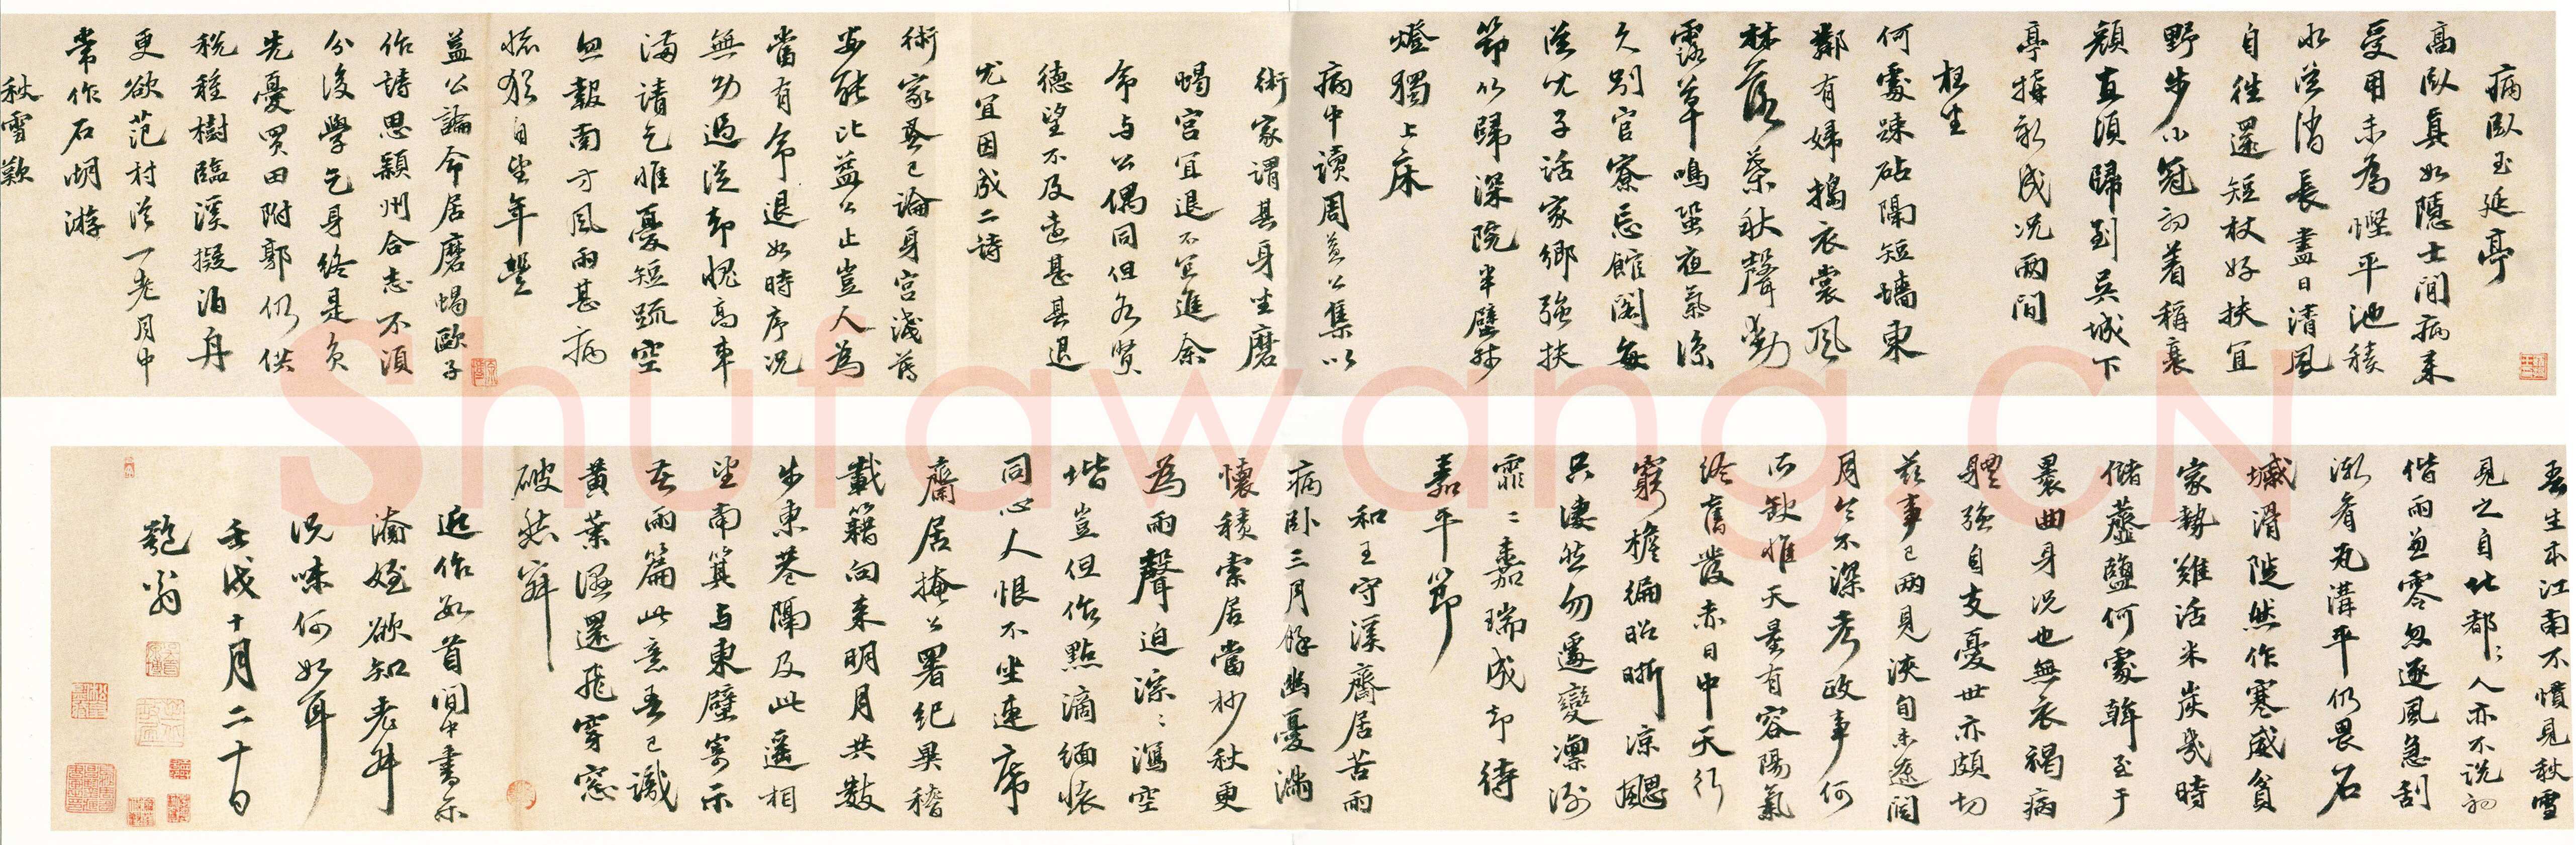 病臥玉延亭
高臥真如隱士間病來
受用未為慳平池積
水從消長盡日清風
自往還短杖好扶宜
野步小冠初着稱衰
顏直須歸到吳城下
亭搆新成況兩間
夜坐
何處疎砧隔短墻東
鄰有婦搗衣裳風
林落葉秋聲勁
露草鳴蛩夜氣涼
久別官寮忘館閣每
從兒子話家鄉強扶
節以歸深院半壁殘
燈獨上床
病中讀周益公集以
術家謂其身坐磨
蝎宮宜退不宜進余
命与公偶同但名賢
德望不及遠甚其退
尤宜因成二詩
術家蚤已論身宮淺薄
安能比益公止豈人為
當有命退如時序況
無功過從却愧高車
滿請乞惟憂短疏空
忽報南方風雨甚病
懷猶自望年豐
益公論命居磨蝎歐子
作詩思潁州合志不須
分後學乞身終是負
先憂買田附郭仍供
稅種樹臨溪擬泊舟
更欲范村從一老月中
常作石湖游
秋雪歎
吾生本江南不慣見秋雪
見之自北都人亦不說初
偕雨並零忽逐風急刮
漸看瓦溝平仍畏石
堿滑陡然作寒威貧
家勢難活米炭幾時
儲虀鹽何處辦至于
裏曲身況也無衣褐病
軀強自支憂世亦頗切
茲事已兩見浹旬未遼闊
月令不深考政事何
所缺惟天量有容陽氣
終舊發赤日中天行
窮檐徧昭晣涼颸
只淒然勿遽變凜冽
霏霏嘉瑞成卻待
嘉平節
和王守溪齋居苦雨
病卧三月餘幽憂滿
懷積索居當杪秋更
為雨聲迫深深瀉空
堦豈但作點滴緬懷
同心人恨不坐連席
齋居掩公署紀異稽
載籍向來明月共數
步東巷隔及此遥相
望南箕与東壁寄示
苦雨篇此意吾已識
黃葉濕還飛穿窓
破愁寂
近作數首間中書示
瀹姪欲知老拙
況味何如耳
壬戌十月二十日
匏翁
Shufawang.CN